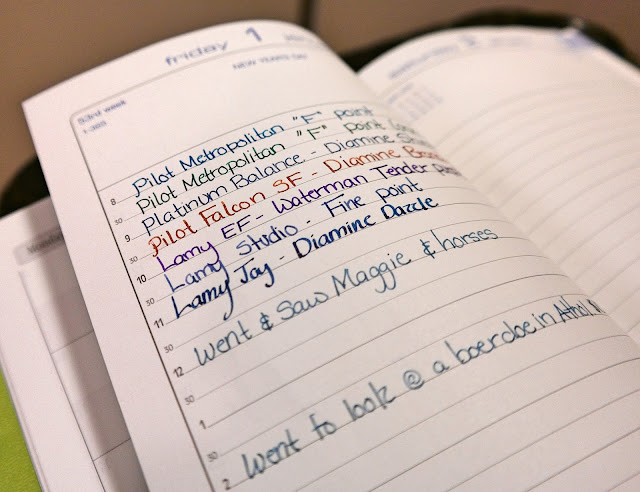 friday 1
NEW YEAR'S DAY
53rd week
1-365
8 Pilot Metropolitan "F" point
30 Pilot Metropolitan "F" point
9 Platinum Balance - Diamine
30 Pilot Falcon SF - Diamine
10 Lamy EF - Waterman Tender
30 Lamy Studio - Fine point
11 Lamy Joy - Diamine Dazzle
30
12 Went & Saw Maggie & horses
30
1
30
2 Went to look @ a boerdoe in Athol